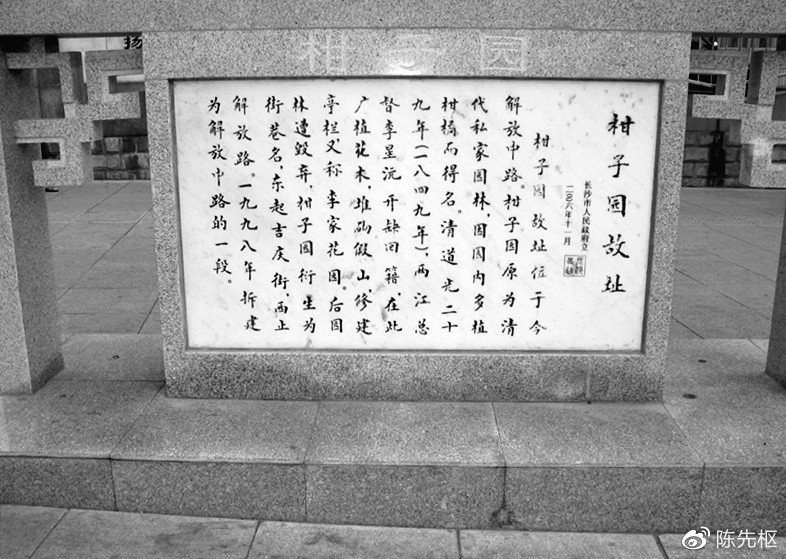 扬
柑子园
柑子园故址
长沙市人民政府立
二〇〇六年十一月
柑子园故址位于今
解放中路。柑子园原为清
代私家园林,因园内多植
柑橘而得名。清道光二十
九年(一八四九年),两江总
督李星沅开缺回籍,在此
广植花木,堆砌假山,修建
亭栏,又称李家花园。后园
林遭毁弃,柑子园衍生为
街巷名,东起吉庆街,西止
解放路。一九九八年拆建
为解放中路的一段。
陈先枢